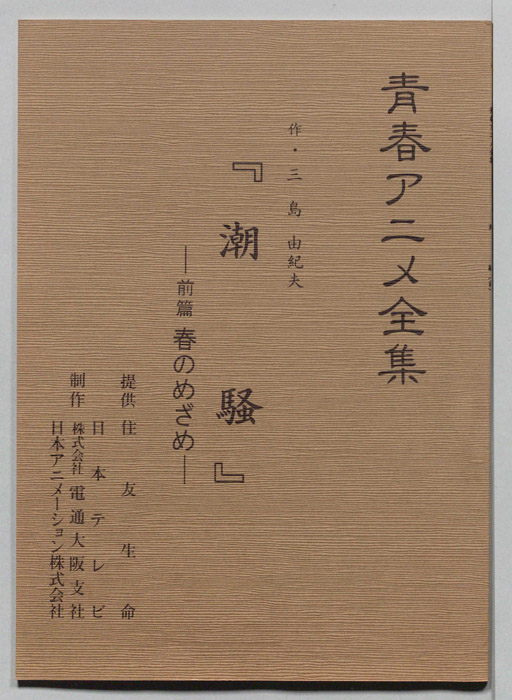 青春アニメ全集
作・三島由紀夫
『潮騒』
―前篇 春のめざめ―
提供 住友生命
日本テレビ
制作 株式会社 電通大阪支社
日本アニメーション株式会社